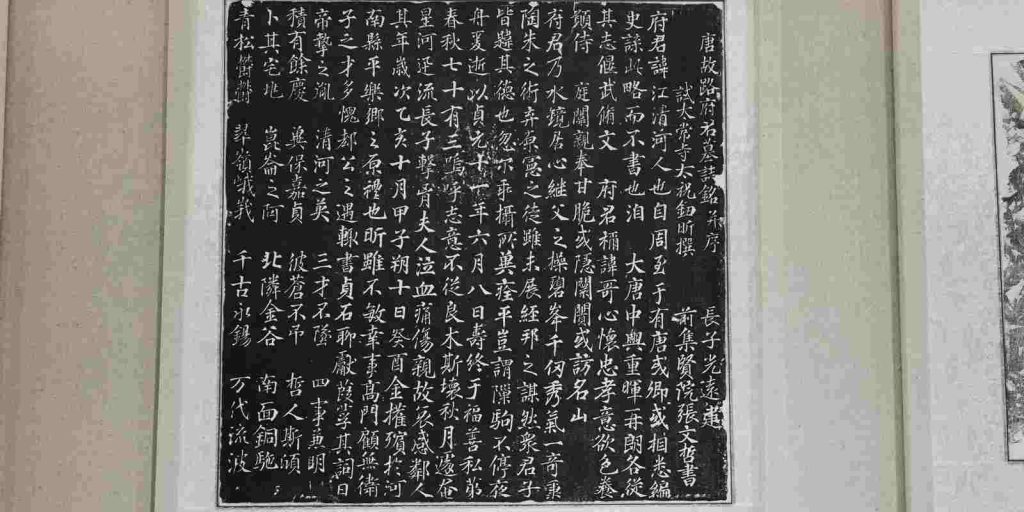 唐故路府君墓誌銘并序
試太常寺太祝鈕昕撰 前集賢院張文哲書 長子光遠
府君諱江清河人也自周至于有唐或卿或相悉編
史諜此略而不書也洎 大唐中興重暉再朗各從
其志偃武脩文 府君稱諱哥心懷忠孝意欲色養
顗侍 庭闈親奉甘脆或隱闤闠或訪名山
府君乃水鏡居心繼父之操碧峯千仞秀氣一奇秉
陶朱之術弃魚鹽之徒雖未展經邦之謀然衆君子
皆韙其德也忽尔乖攝 奠痊平豈謂隟駒不停夜
舟爰逝以貞元十一年六月八日壽終于福善私第
春秋七十有三嗚呼志意不從良木斯壞秋月邊
星河逆流長子擊胷夫人泣血痛傷親故哀感鄰人
其年歲次乙亥十月甲子朔十日癸酉金權殯於河
南縣平樂鄉之原禮也昕雖不敏幸事高門顧無衛
子之才多愧郄公之遇輙書貞石聊 其詞曰
帝摯之胤 清河之英 三才不墜 四事兼明
積有餘慶 冀保嘉貞 彼蒼不吊 哲人斯傾
卜其宅地 崑崙之阿 北隣金谷 南面銅駞
青松欝欝 翠嶺峩峩 千古永錫 万代流波